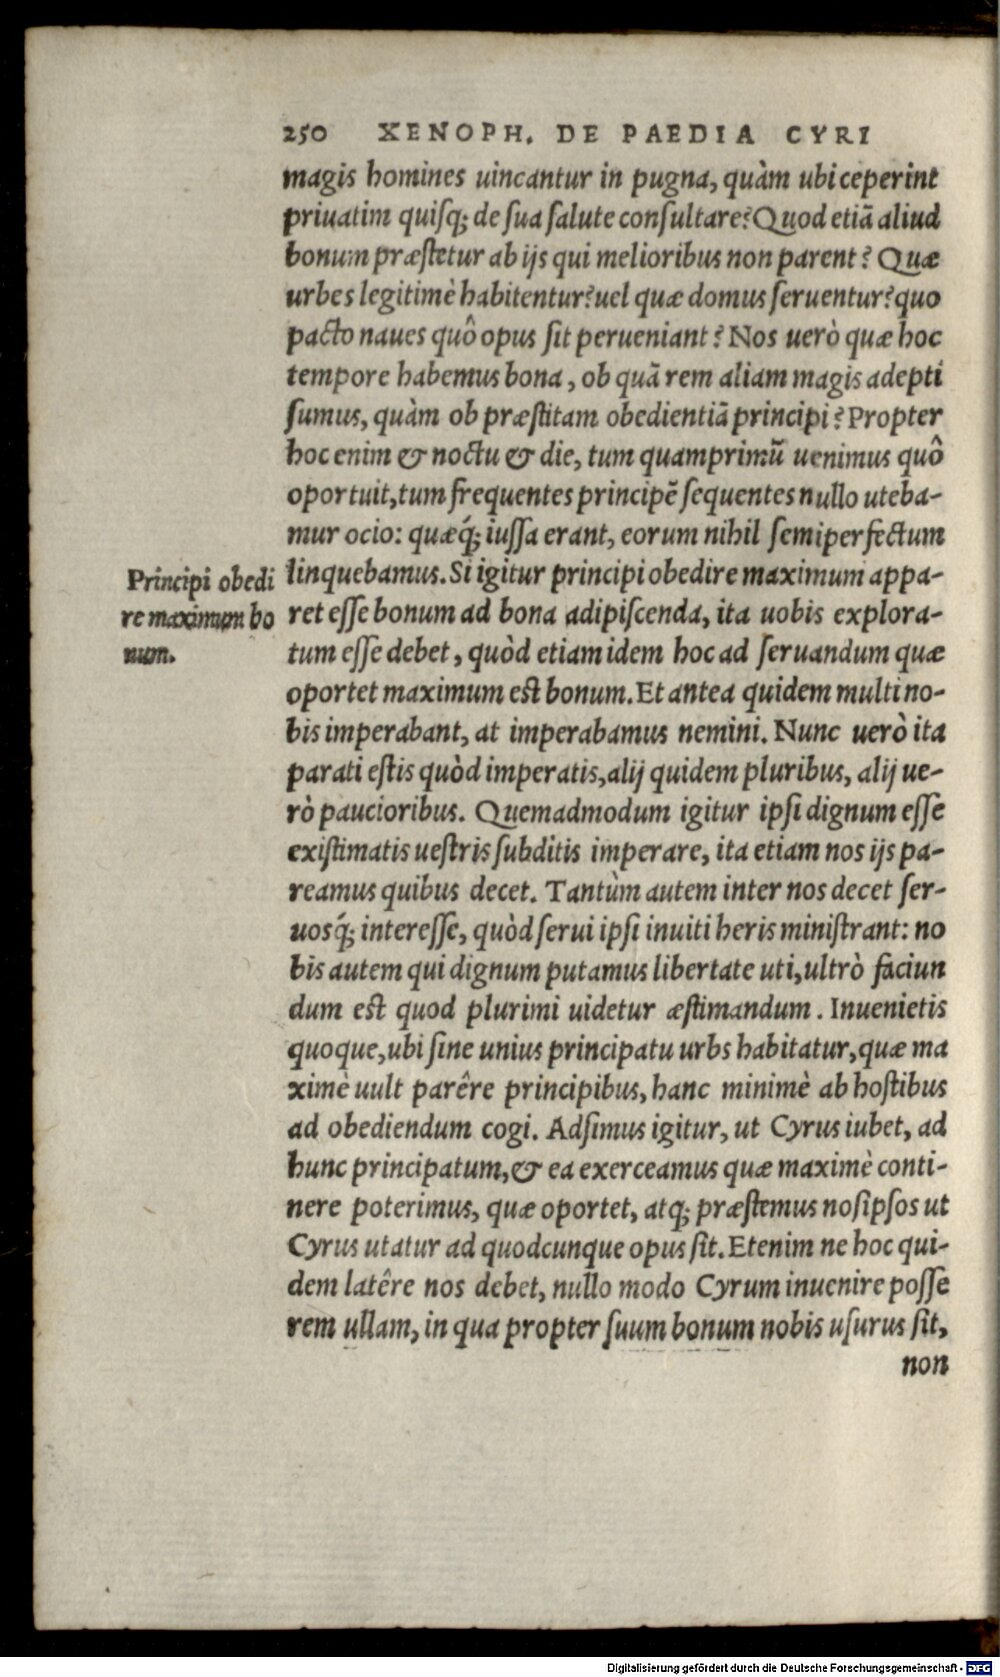 250 XENOPH. DE PAEDIA CYRI
magis homines uincantur in pugna, quàm ubi ceperint
priuatim quiſq; de ſua ſalute conſultare? Quod etiā aliud
bonum præſtetur ab ijs qui melioribus non parent? Quæ
urbes legitimè habitentur? uel quæ domus ſeruentur? quo
pacto naues quô opus ſit perueniant? Nos uerò quæ hoc
tempore habemus bona, ob quā rem aliam magis adepti
ſumus, quàm ob præſtitam obedientiā principi? Propter
hoc enim & noctu & die, tum quamprimū uenimus quô
oportuit, tum frequentes principē ſequentes nullo uteba-
mur ocio: quæq́; iuſſa erant, eorum nihil ſemiperfectum
linquebamus. Si igitur principi obedire maximum appa-
ret eſſe bonum ad bona adipiſcenda, ita uobis explora-
tum eſſe debet, quòd etiam idem hoc ad ſeruandum quæ
oportet maximum est bonum. Et antea quidem multi no-
bis imperabant, at imperabamus nemini. Nunc uerò ita
parati eſtis quòd imperatis, alij quidem pluribus, alij ue-
rò paucioribus. Quemadmodum igitur ipſi dignum eſſe
exiſtimatis ueſtris ſubditis imperare, ita etiam nos ijs pa-
reamus quibus decet. Tantùm autem inter nos decet ſer-
uosq́; intereſſe, quòd ſerui ipſi inuiti heris miniſtrant: no
bis autem qui dignum putamus libertate uti, ultrò faciun
dum est quod plurimi uidetur æſtimandum. Inuenietis
quoque, ubi ſine unius principatu urbs habitatur, quæ ma
ximè uult parêre principibus, hanc minimè ab hoſtibus
ad obediendum cogi. Adſimus igitur, ut Cyrus iubet, ad
hunc principatum, & ea exerceamus quæ maximè conti-
nere poterimus, quæ oportet, atq; præſtemus noſipſos ut
Cyrus utatur ad quodcunque opus ſit. Etenim ne hoc qui-
dem latêre nos debet, nullo modo Cyrum inuenire poſſe
rem ullam, in qua propter ſuum bonum nobis uſurus ſit,
non
Principi obedi
re maximum bo
num.
Digitalisierung gefördert durch die Deutsche Forschungsgemeinschaft - DFG